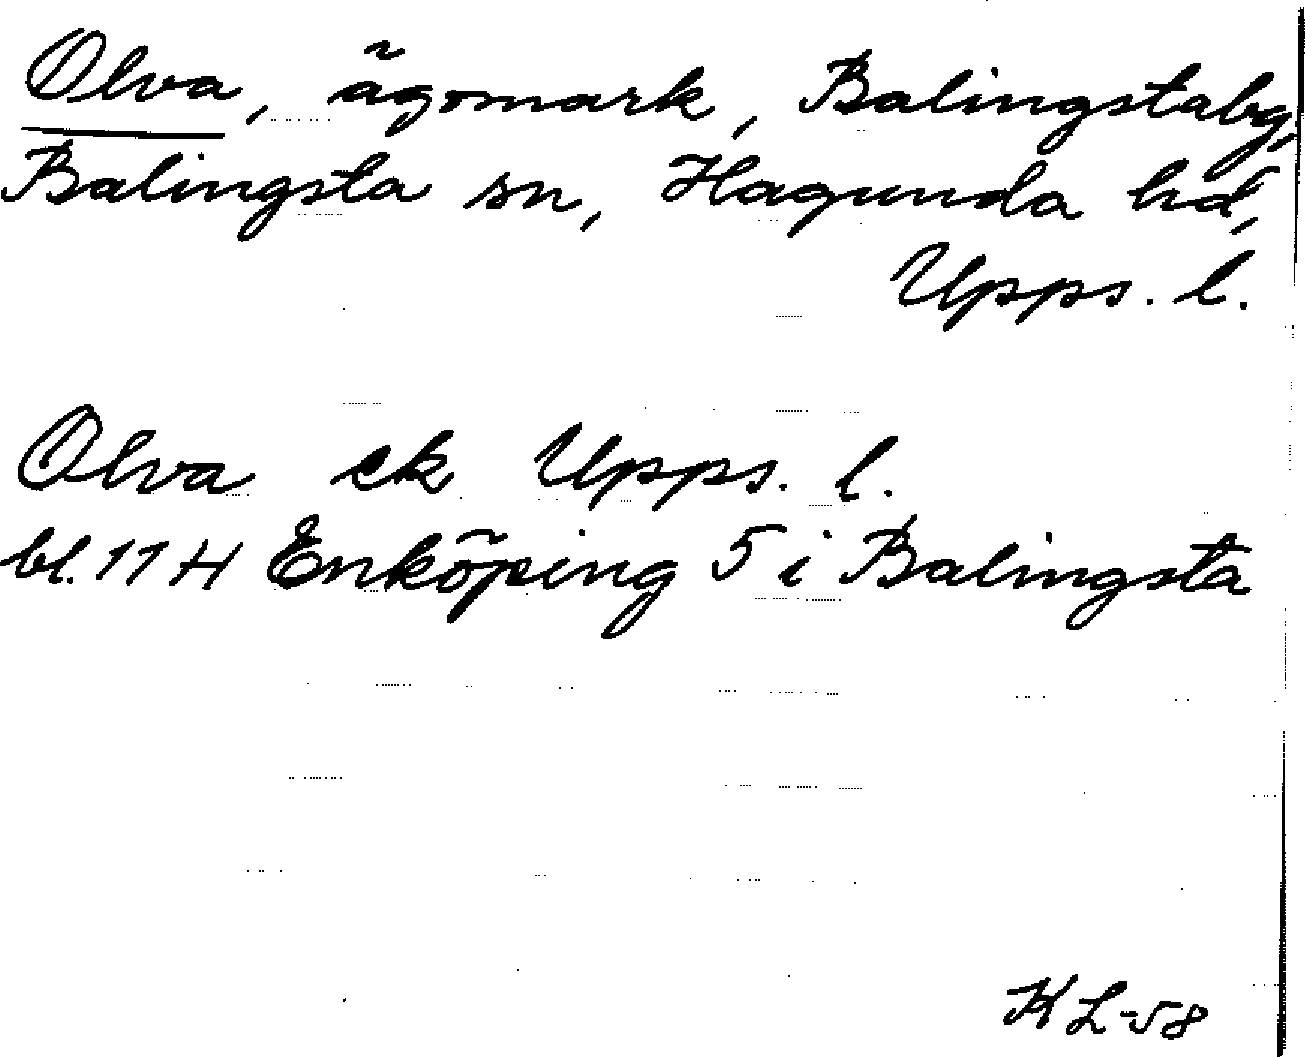 Olva, ägomark, Balingstaby,
Balingsta sn, Hagunda hd,
Upps. l.
Olva ek Upps. l.
bl. 11 H Enköping 5 i Balingsta
KL-58